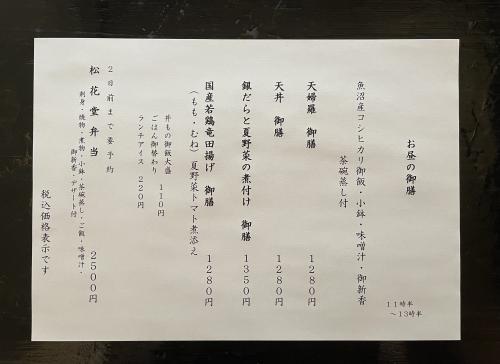 お昼の御膳
11時半
～13時半
魚沼産コシヒカリ御飯・小鉢・味噌汁・御新香
茶碗蒸し付
天婦羅 御膳 1280円
天丼 御膳 1280円
銀だらと夏野菜の煮付け 御膳 1350円
国産若鶏竜田揚げ 御膳 1280円
(もも・むね)夏野菜トマト煮添え
丼もの御飯大盛
ごはん御替わり 110円
ランチアイス 220円
2日前まで要予約
松花堂弁当 2500円
刺身・焼物・煮物・小鉢・茶碗蒸し・ご飯・味噌汁・
御新香・デザート付
税込価格表示です